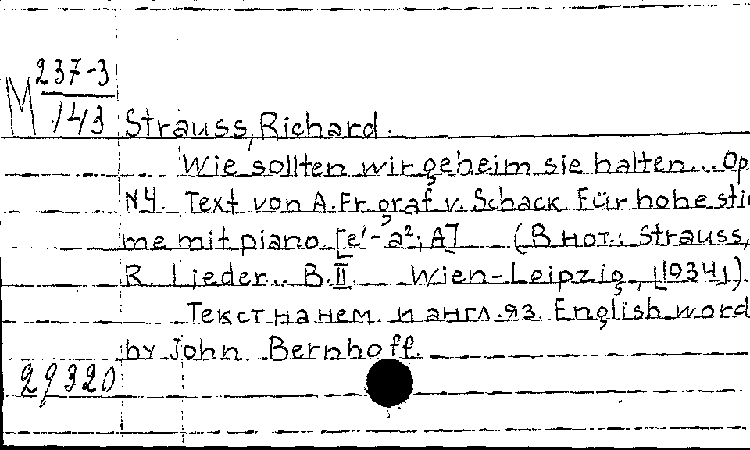 M 237-3
143
Strauss, Richard.
Wie sollten wir geheim sie halten... Op
N4. Text von A. Fr. graf v. Schack. Für hohe stim
me mit piano [e¹-a²; A] (В нот.: Strauss,
R. Lieder.. B. II. Wien-Leipzig, [1934]).
Текст на нем. и англ. яз. English word
by John Bernhoff.
29320